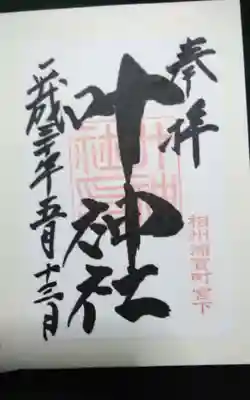 奉拝
叶神社
相州浦賀町宮下
平成三十年五月十三日